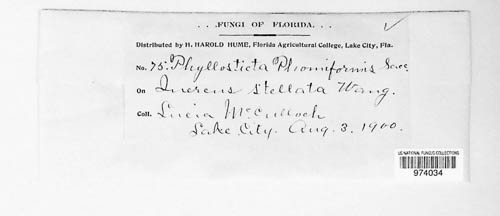 . . . FUNGI OF FLORIDA. . . .
Distributed by H. HAROLD HUME, Florida Agricultural College, Lake City, Fla.
No. 75. Phyllosticta Phomiformis Sacc.
On Quercus stellata Wang.
Coll. Lucia McCulloch
Lake City. Aug. 3, 1900.
US NATIONAL FUNGUS COLLECTIONS
974034